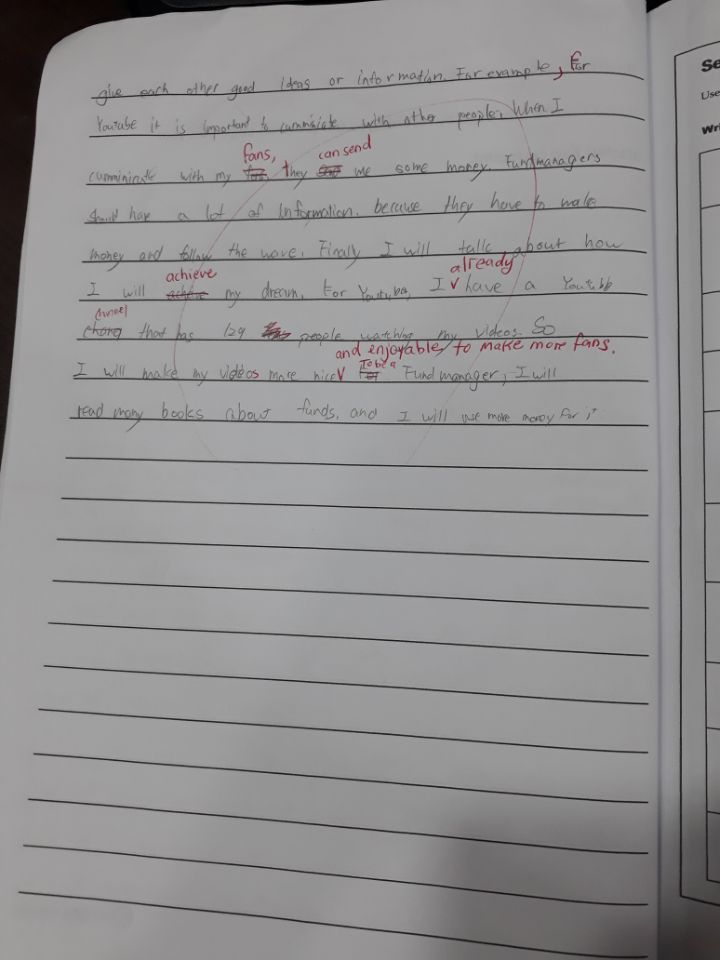 give each other good ideas or information. For example, For
Youtube it is important to cumminicate with other people. When I
fans, can send
cumminicate with my they me some money. Fundmanagers
should have a lot of information. because they have to make
money and follow the wave. Finally I will talk about how
achieve already
I will achieve my dream. For Youtube, I have a
channel
that has 129 people watching my videos. So
and enjoyable, to make more fans.
I will make my videos more nice Fund manager, I will
To be a
read many books about funds, and I will use more money for it
Se
Use
Wri